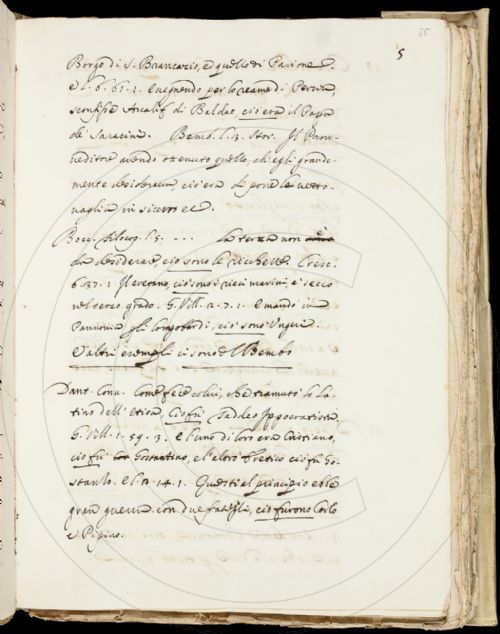 25
5
Borgo di S. Brancazio, e quello di Parione.
e l. 6. 61. 1. e vegnendo per lo reame di Persia,
sconfisse Arcalif di Baldac, cio era il Papa
de' Saracini. Bemb. l. 3. Stor. Il Prov-
veditore avendo ottenuto quello, ch'egli grande-
mente desiderava, cio era di porre le vetto-
vaglie in sicuro ec.
Bocc. filocop. l. 5. - - - La terza non
da desiderare, cio sono le ricchezze. Cresc.
6. 37. 1. Il cretano, cio sono i ceci marini, è secco
nel terzo grado. G. Vill. 2. 7. 1. e mandò in
Pannonia gli Longobardi, cio sono Ungari.
Et altri esempli ci sono del Bembo
Dant. Conv. Come fece colui, che tramutò lo La-
tino dell'Etica, Cio fu Taddeo Ippocratista
G. Vill. 1. 59. 3. e l'uno di loro era Cristiano,
cio fu Costantino, e l'altro Eretico cio fu Co-
stanzo. e l. 2. 14. 1. Questi al principio ebbe
gran guerra con due frategli, cio furono Carlo
e Pipino.